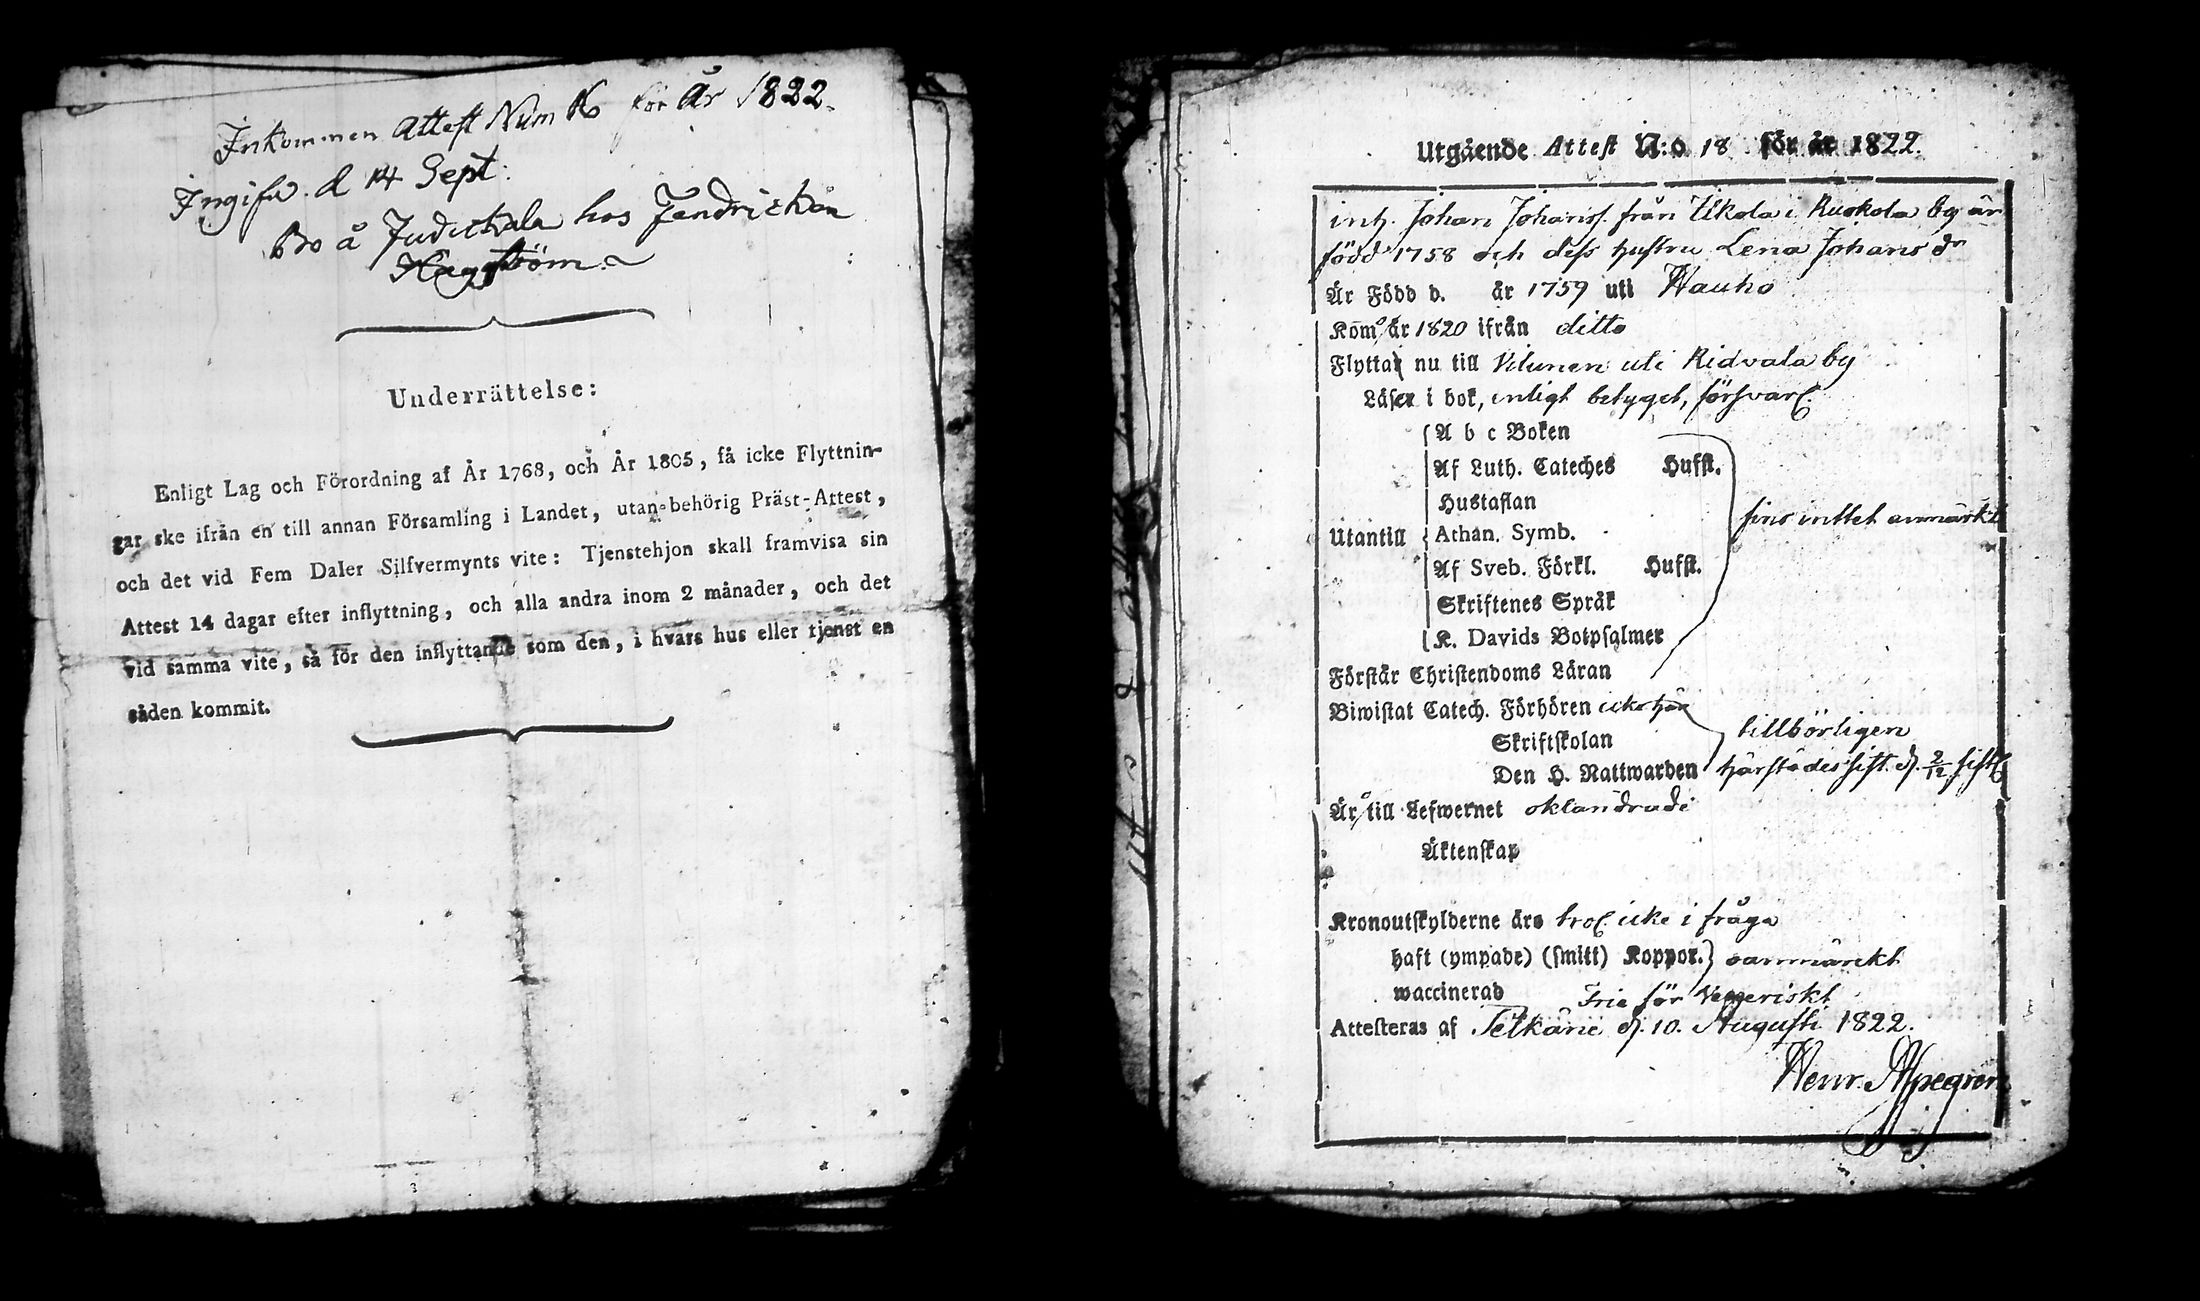 Inkommen Attest Num 16 för År 1822.
Ingifv. d 14 Sept:
bro å Judickala hos Fendrickan
Haggström.
Underrättelse:
Enligt Lag och Förordning af År 1768, och År 1805, få icke Flyttnin-
gar ske ifrån en till annan Församling i Landet, utan behörig Präst-Attest,
och det vid Fem Daler Silfvermynts vite: Tjenstehjon skall framvisa sin
Attest 14 dagar efter inflyttning, och alla andra inom 2 månader, och det
vid samma vite, så för den inflyttande som den, i hvars hus eller tjenst en
såden kommit.
Utgående Attest N:o 18 för år 1822.
inh. Johan Johansf. från Ukola i Ruokola by är
född 1758 och dess hustru Lena Johans dr
Är Född d. år 1759 uti Hauho
Kom år 1820 ifrån ditto
Flyttar nu till Vilunen uti Ridvala by
Läser i bok, enligt betyget, försvarl.
A b c Boken
Af Luth. Cateches Hufst.
Hustaflan
Utantill Athan. Symb.
fins inttet anmärkt
Af Sveb. Förkl. Hufst.
Skriftenes Språk
K. Davids Botpsalmer
Förstår Christendoms Läran
Biwistat Catech. Förhören icke här
Skriftskolan tillbörligen
Den H. Nattwarden härstädes sist. d. 2/12 sistl.
Är till Lefwernet oklandrade
Äktenskap
Kronoutskylderne äro trol. icke i fråga
haft (ympade) (smitt) Koppor. oanmärckt
waccinerad Frie för Veneriskt
Attesteras af Pelkäne d. 10. Augusti 1822.
Henr. Alpegren